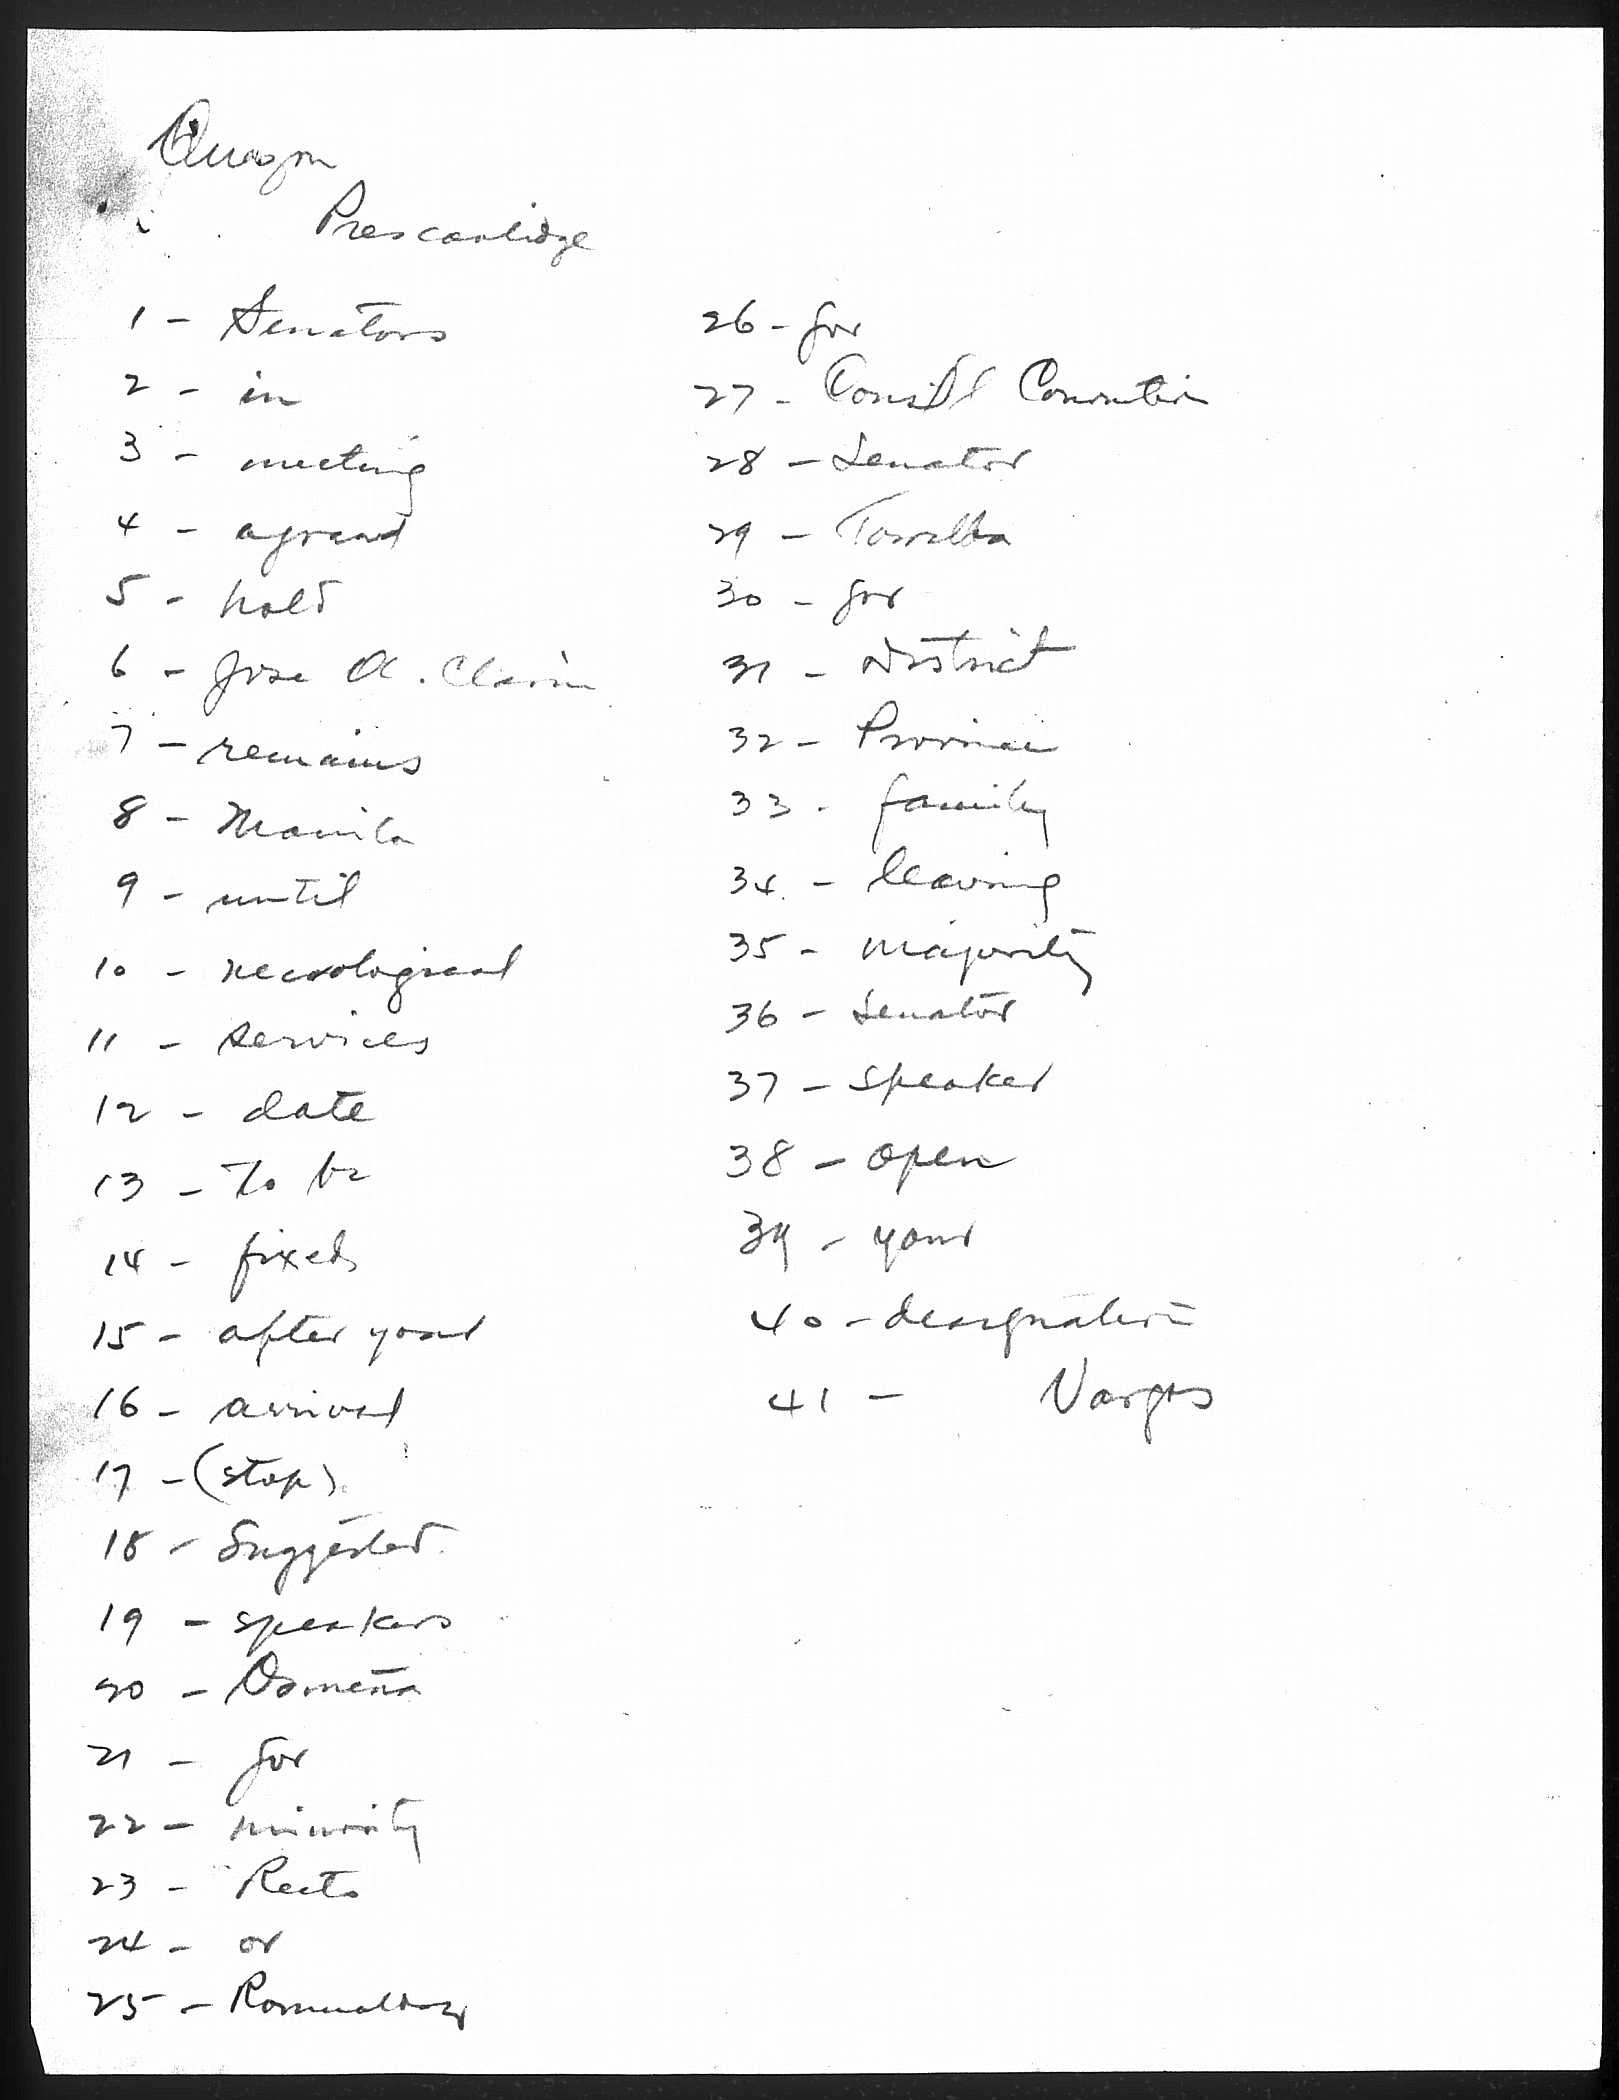 Quezon
Prescoolidge
1 - Senators
2 - in
3 - meeting
4 - agreed
5 - hold
6 - Jose A. Clarin
7 - remains
8 - Manila
9 - until
10 - necrological
11 - services
12 - date
13 - To be
14 - fixed
15 - after your
16 - arrival
17 - (stop)
18 - Suggested
19 - speakers
20 - Osmeña
21 - for
22 - minority
23 - Recto
24 - or
25 - Romualdez
26 - for
27 - Convention
28 - Senator
29 - Torralba
30 - for
31 - District
32 - Province
33 - family
34 - leaving
35 - majority
36 - Senator
37 - speaker
38 - open
39 - your
40 - designation
41 - Vargas